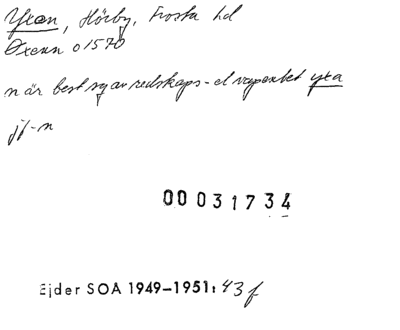 Yxan, Hörby, Frosta hd
Øxenn o 1570
n är best sg av redskaps- el vapenbet yxa
jf -n
00031734
Ejder SOA 1949–1951: 43 f